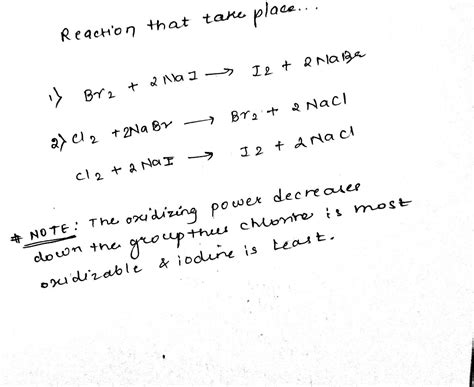 Reaction that take place...
1) Br2 + 2NaI → I2 + 2NaBr
2) Cl2 + 2NaBr → Br2 + 2NaCl
Cl2 + 2NaI → I2 + 2NaCl
# NOTE: The oxidizing power decreases
down the group thus chlorine is most
oxidizable & iodine is least.